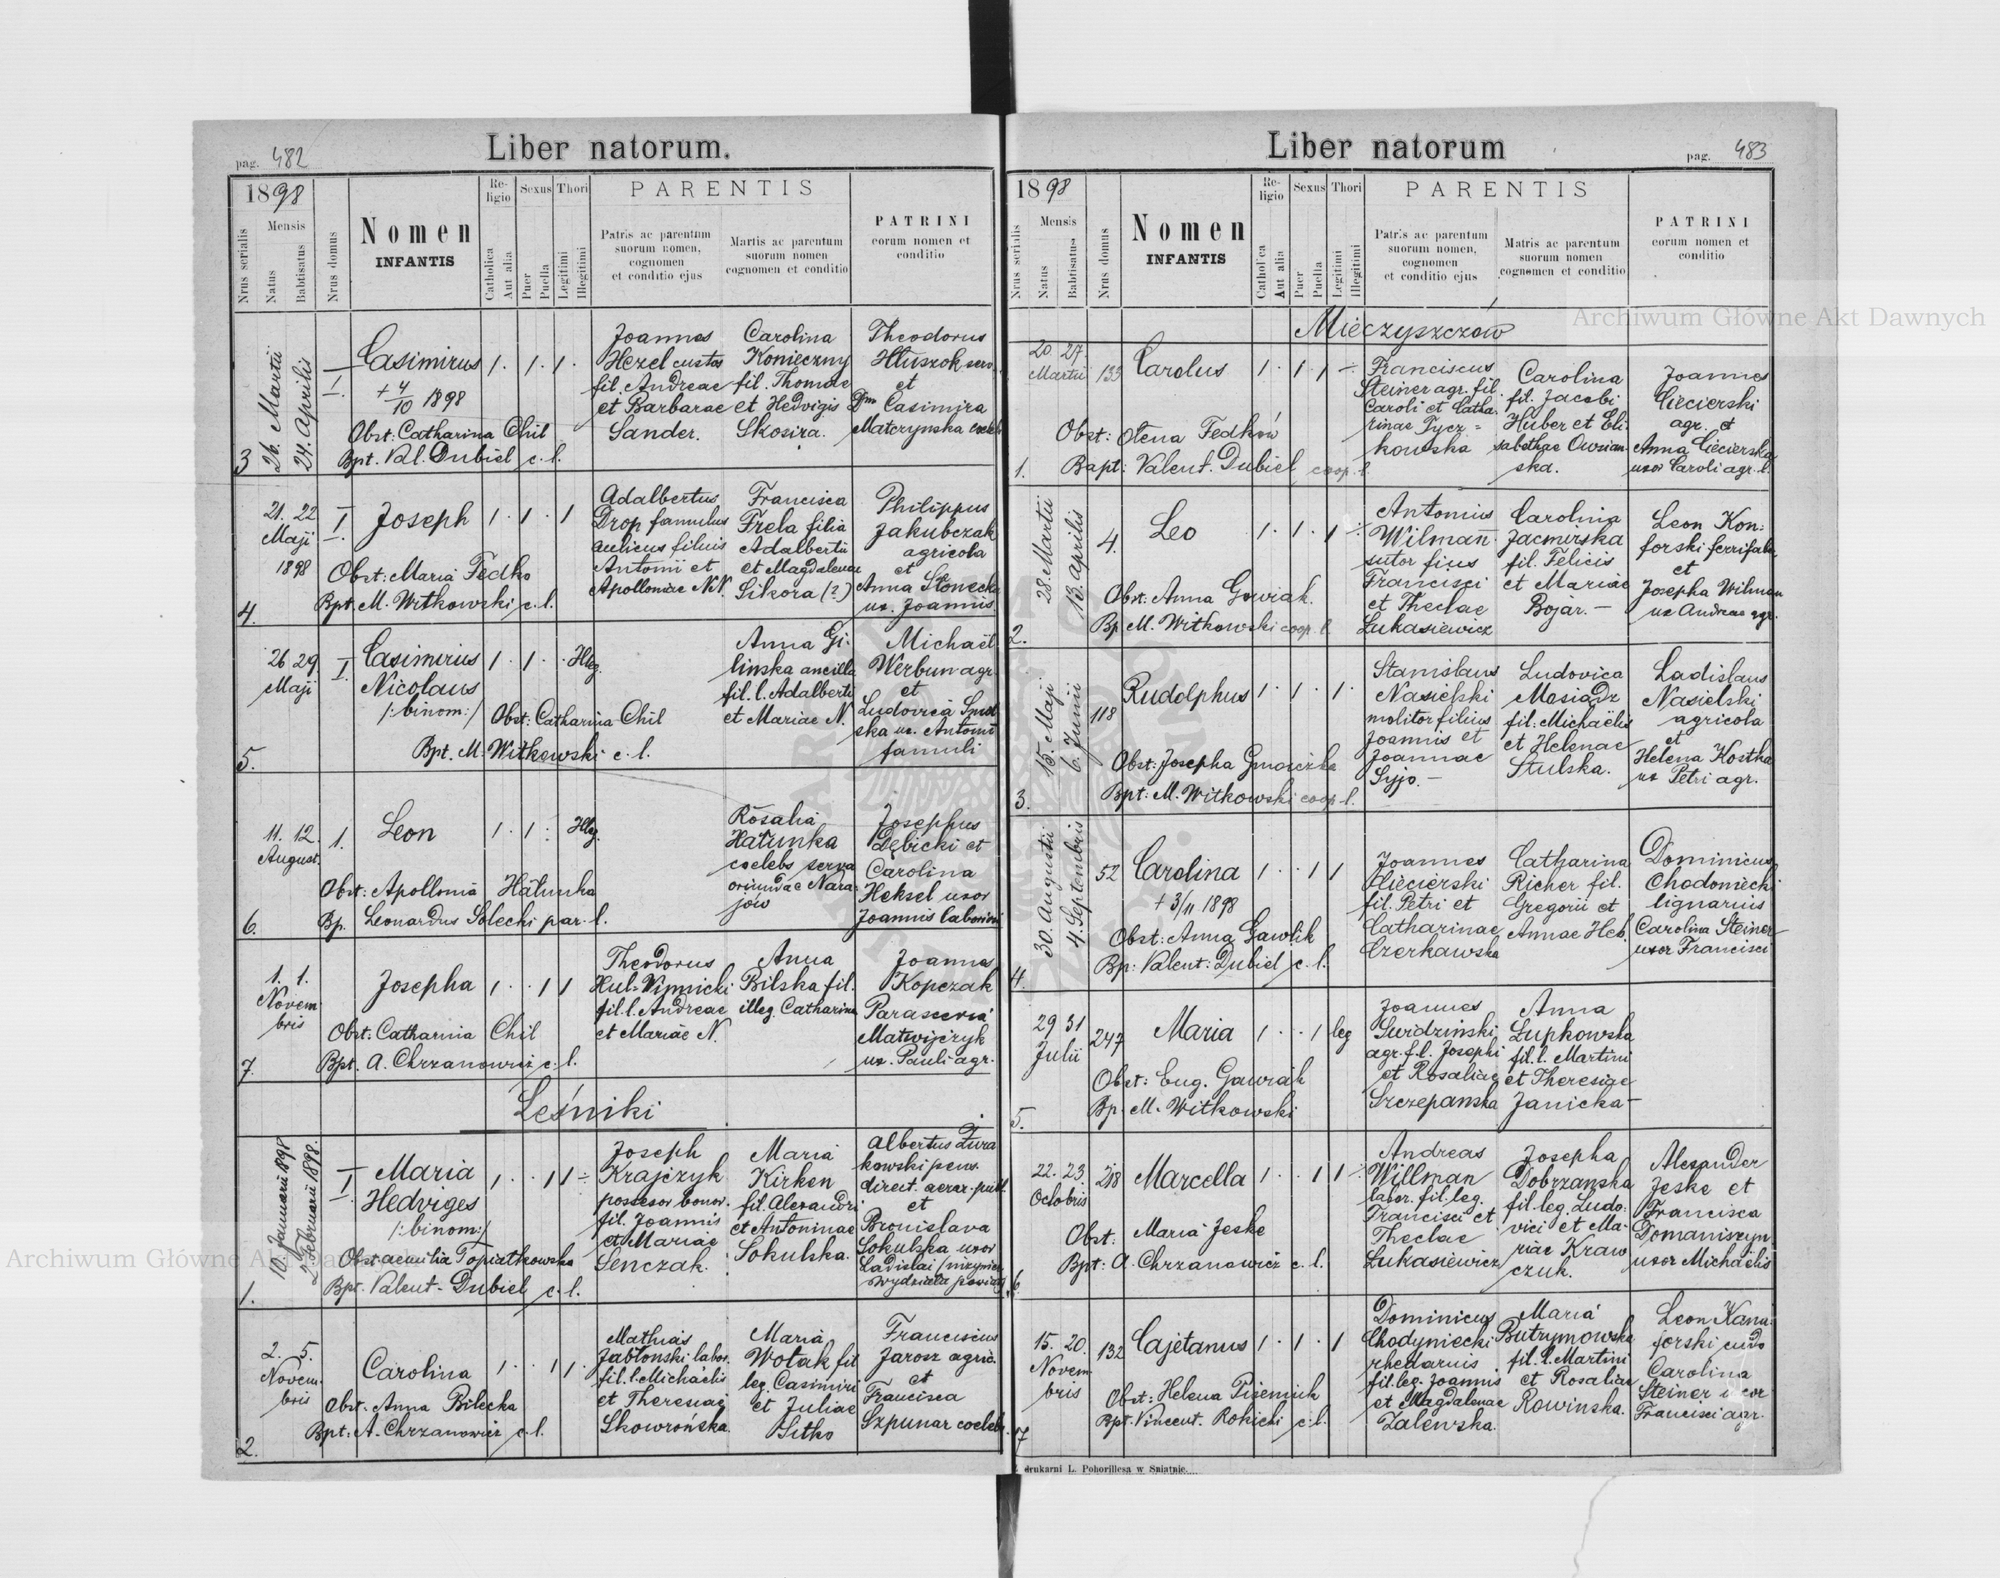 Liber natorum.
pag. 482
1898
Nrus serialis
Mensis
Natus
Babtisatus
Nrus domus
Nomen
INFANTIS
Re-
ligio
Catholica
Aut alia
Sexus
Puer
Puella
Thori
Legitimi
Illegitimi
PARENTIS
Patris ac parentum
suorum nomen,
cognomen
et conditio ejus
Martis ac parentum
suorum nomen
cognomen et conditio
PATRINI
eorum nomen et
conditio
3
26. Martii
24. Aprilis
I
Casimirus
+ 4/10 1898
1. 1. 1.
Obst: Catharina Chil
Bpt. Val. Dubiel c. l.
Joannes
Hezel custos
fil. Andreae
et Barbarae
Sander.
Carolina
Konieczny
fil. Thomae
et Hedvigis
Skosira.
Theodorus
Hluszok
et
Casimira
Matczynska
4.
21. 22
Maji
1898
I
Joseph
1. 1 1
Obst: Maria Fedko
Bpt. M. Witkowski c. l.
Adalbertus
Drop famulus
aulicus filius
Antonii et
Apolloniae N.N.
Francisca
Frela filia
Adalberti
et Magdalenae
Sikora (?)
Philippus
Jakubczak
agricola
et
Anna Słonecka
ux. Joannis
5.
26 29
Maji
I
Casimirus
Nicolaus
/:binom:/
1. 1. Illeg.
Obst: Catharina Chil
Bpt. M. Witkowski c. l.
Anna Gi-
linska ancilla
fil. l. Adalberti
et Mariae N.
Michaël
Werbun agr.
et
Ludovica
ska ux. Antoni
famuli
6.
11. 12.
August.
1.
Leon
1. 1. Illeg.
Obst: Apollonia Hałunka
Bp. Leonardus Solecki par. l.
Rosalia
Hałunka
coelebs serva
oriundae Nara-
jów
Josephus
Dębicki et
Carolina
Heksel uxor
Joannis
7.
1. 1.
Novem
bris
Josepha
1. 1 1
Obst. Catharina Chil
Bpt. A. Chrzanowicz c. l.
Theodorus
Hul-Winnicki
fil. l. Andreae
et Mariae N.
Anna
Bilska fil.
illeg. Catharina
Joannes
Kopczak
Parascevia
Matwijczyk
ux. Pauli agr.
Leśniki
1.
10. Januarii 1898
2. Februarii 1898.
I
Maria
Hedviges
/:binom:/
1. 1 1
Obst. Aemilia Topiatkowska
Bpt. Valent. Dubiel c. l.
Joseph
Krajczyk
possesor bonor.
fil. Joannis
et Mariae
Senczak.
Maria
Kirken
fil. Alexandri
et Antoninae
Sokulska.
Albertus Żura
kowski pens.
direct. aerar. publ.
et
Bronislava
Sokulska uxor
Ladislai
2.
2. 5.
Novem.
bris
Carolina
1. 1 1.
Obst. Anna Bilecka
Bpt: A. Chrzanowicz c. l.
Mathias
Jabłonski labor.
fil. l. Michaelis
et Theresiae
Skowrońska.
Maria
Wolak fil
leg. Casimiri
et Juliae
Sitko
Franciscus
Jarosz agric.
et
Francisca
Szpunar coelebs
Liber natorum
pag. 483
1898
Nrus serialis
Mensis
Natus
Babtisatus
Nrus domus
Nomen
INFANTIS
Re-
ligio
Catholica
Aut alia
Sexus
Puer
Puella
Thori
Legitimi
Illegitimi
PARENTIS
Patris ac parentum
suorum nomen,
cognomen
et conditio ejus
Matris ac parentum
suorum nomen
cognomen et conditio
PATRINI
eorum nomen et
conditio
Mieczyszczów
1.
20. 27.
Martii
133
Carolus
1. 1. 1
Obst: Olena Fedków
Bapt: Valent. Dubiel coop. l.
Franciscus
Steiner agr. fil.
Caroli et Catha-
rinae Tycz-
kowska
Carolina
fil. Jacobi
Huber et Eli-
sabethae Owsian-
ska.
Joannes
Ciecierski
agr. et
Anna Ciecierska
uxor Caroli agr. l.
2.
28. Martii
13. Aprilis
4.
Leo
1. 1. 1
Obst. Anna Gawiak.
Bp M. Witkowski coop. l.
Antonius
Wilman
sutor fius
Francisci
et Theclae
Łukasiewicz
Carolina
Jacmirska
fil. Felicis
et Mariae
Bojar. —
Leon Kon-
forski
et
Josepha Wilman
ux Andreae agr.
3.
15. Maji
6. Junii
118
Rudolphus
1. 1. 1.
Obst: Josepha
Bpt: M. Witkowski coop. l.
Stanislaus
Nasielski
molitor filius
Joannis et
Joannae
Syjo. —
Ludovica
Mosiądz
fil. Michaëlis
et Helenae
Stulska.
Ladislaus
Nasielski
agricola
et
Helena Kostka
ux Petri agr.
4.
30. Augusti
4. Septembris
52
Carolina
+ 3/11 1898
1. 1 1
Obst: Anna Gawlik
Bp: Valent: Dubiel c. l.
Joannes
Ciecierski
fil. Petri et
Catharinae
Czerkawska
Catharina
Richer fil.
Gregorii et
Annae Heb.
Dominicus
Chodoniecki
lignarius
Carolina Steiner
uxor Francisci
5.
29 31
Julii
247
Maria
1. 1 leg
Obst: Eug. Gawrak
Bp. M. Witkowski
Joannes
Gwidzinski
agr. f. l. Josephi
et Rosaliae
Szczepanska
Anna
Łupkowska
fil. l. Martini
et Theresiae
Janicka —
6
22. 23.
Octobris
218
Marcella
1. 1 1
Obst: Maria Jeske
Bpt: A. Chrzanowicz c. l.
Andreas
Willman
labor. fil. leg.
Francisci et
Theclae
Łukasiewicz
Josepha
Dobrzanska
fil. leg. Ludo-
vici et Ma-
riae Kraw
czuk.
Alexander
Jeske et
Francisca
Domaniszyn
uxor Michaelis
7
15. 20.
Novem
bris
132
Cajetanus
1. 1. 1
Obst: Helena
Bpt. Vincent. Rokicki c. l.
Dominicus
Chodyniecki
rhedarius
fil. leg. Joannis
et Magdalenae
Zalewska.
Maria
Butrymowska
fil. l. Martini
et Rosaliae
Rowinska.
Leon Kana-
forski
Carolina
Steiner uxor
Francisci agr.
drukarni L. Pohorillesa w Sniatnie.
Archiwum Główne Akt Dawnych
Archiwum Główne Akt Dawnych